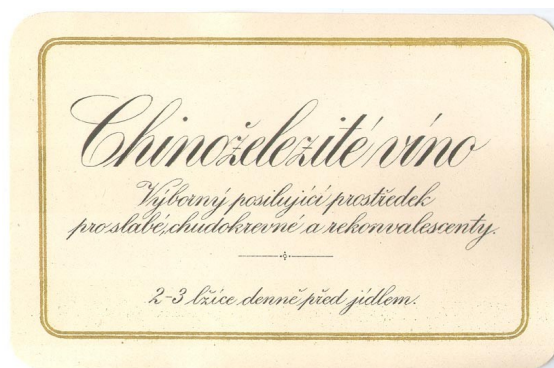 Chinoželezité víno
Výborný posilující prostředek
pro slabé, chudokrevné a rekonvalescenty.
2-3 lžíce denně před jídlem.